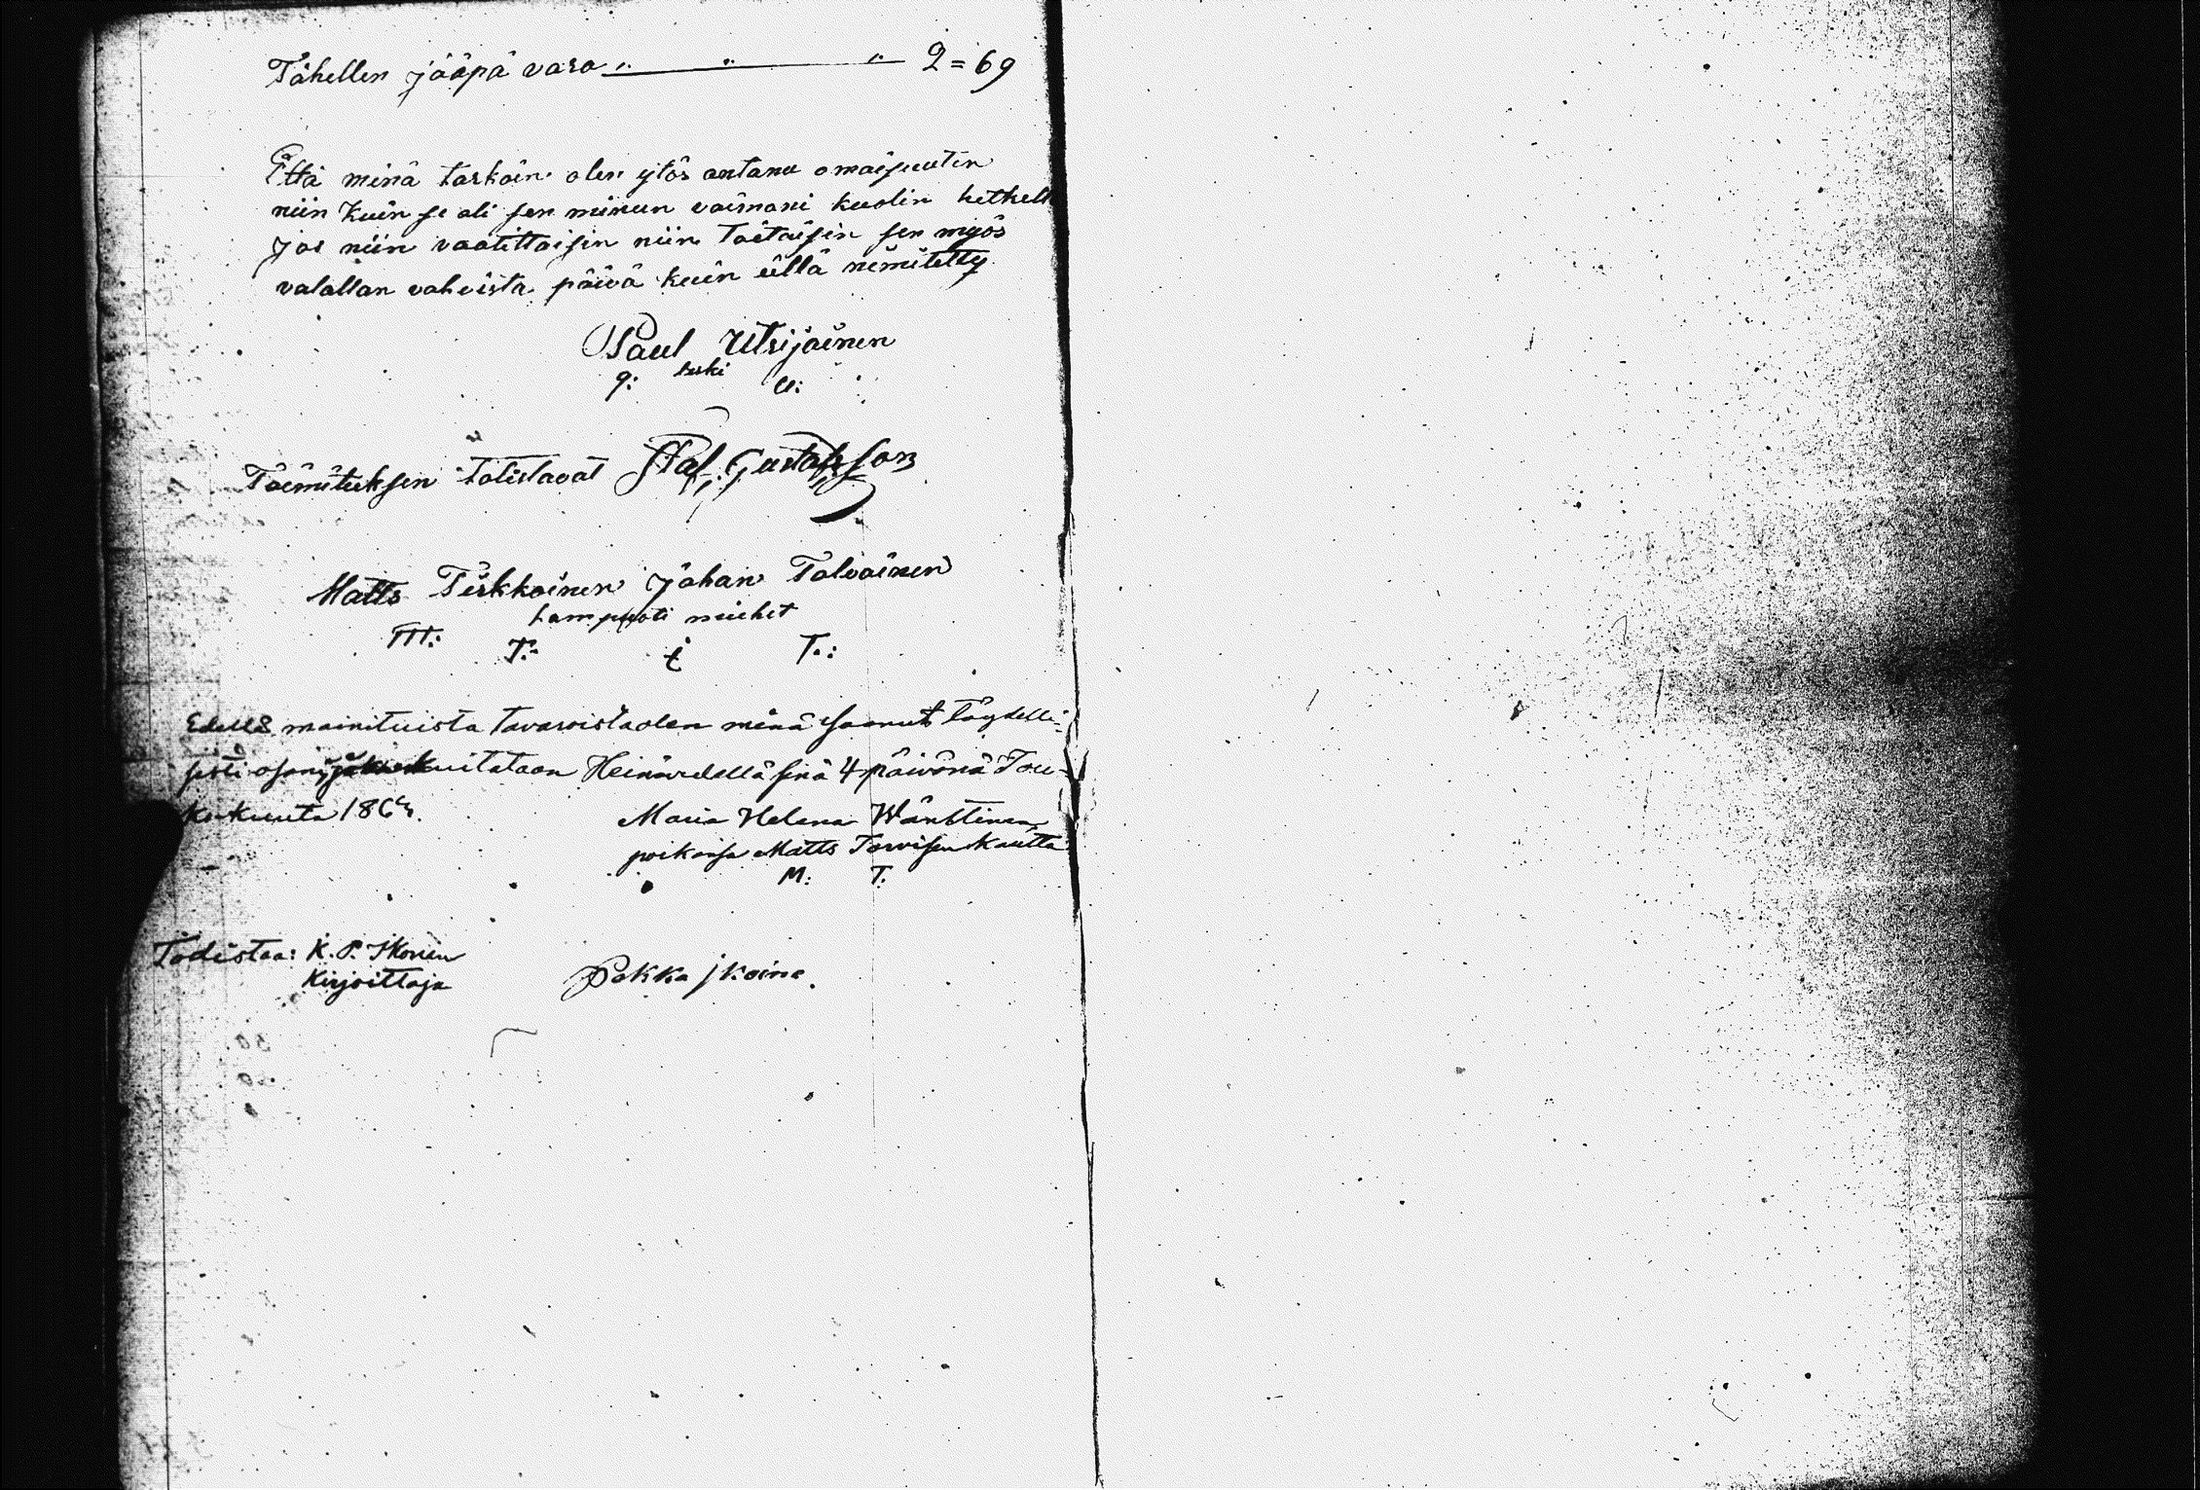 Tähellen jääpä vara " " " 2=69
Että minä tarkoin olen ylös antanu omaisuuten
niin kuin se oli sen minun vaimoni kuolin hetkell
jos niin vaatittaisin niin taitaisin sen myös
valallan vahvista päivä kuin üllä nimitetty
Paul Utrijainen
leski
Toimituksen totistavat Gustafsson
Matts Tirkkoinen Johan Talvainen
Lampuoti miehet
T: i T.:
Edellä mainituista tavaroista olen minä saanut täydelli-
sesti osani kuitataan Heinävedellä sinä 4 päivänä Tou-
kokuuta 186
Maria Helena Wänttinen
poikansa Matts Tarvisen kautta
M: T.
Todistaa: K. P. Ikonen
Kirjoittaja
Pekka jkoine.